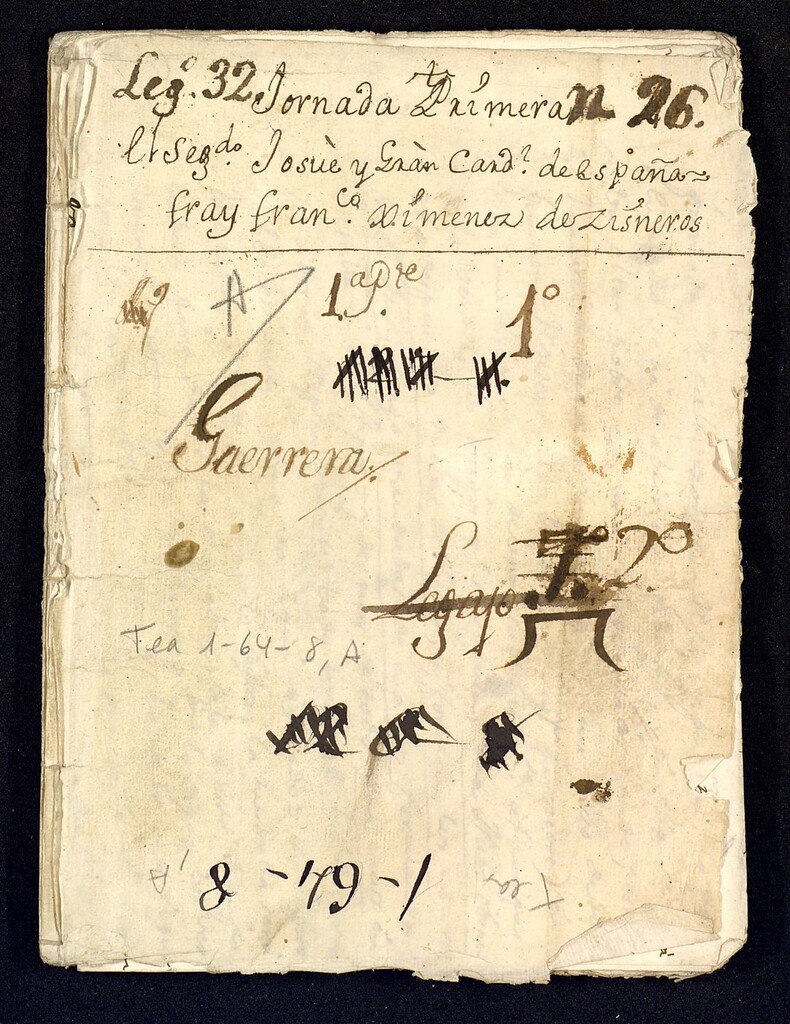 Leg.º 32 Jornada Primera n 26.
El Seg.do Josuè y Gràn Card.l de españa~
fray fran.co Ximenez de Zisneros
A 1.a p.te 1º
Guerrera.
Legajo 1.º 2º
Tea 1-64-8, A
Tea 1-64-8, A